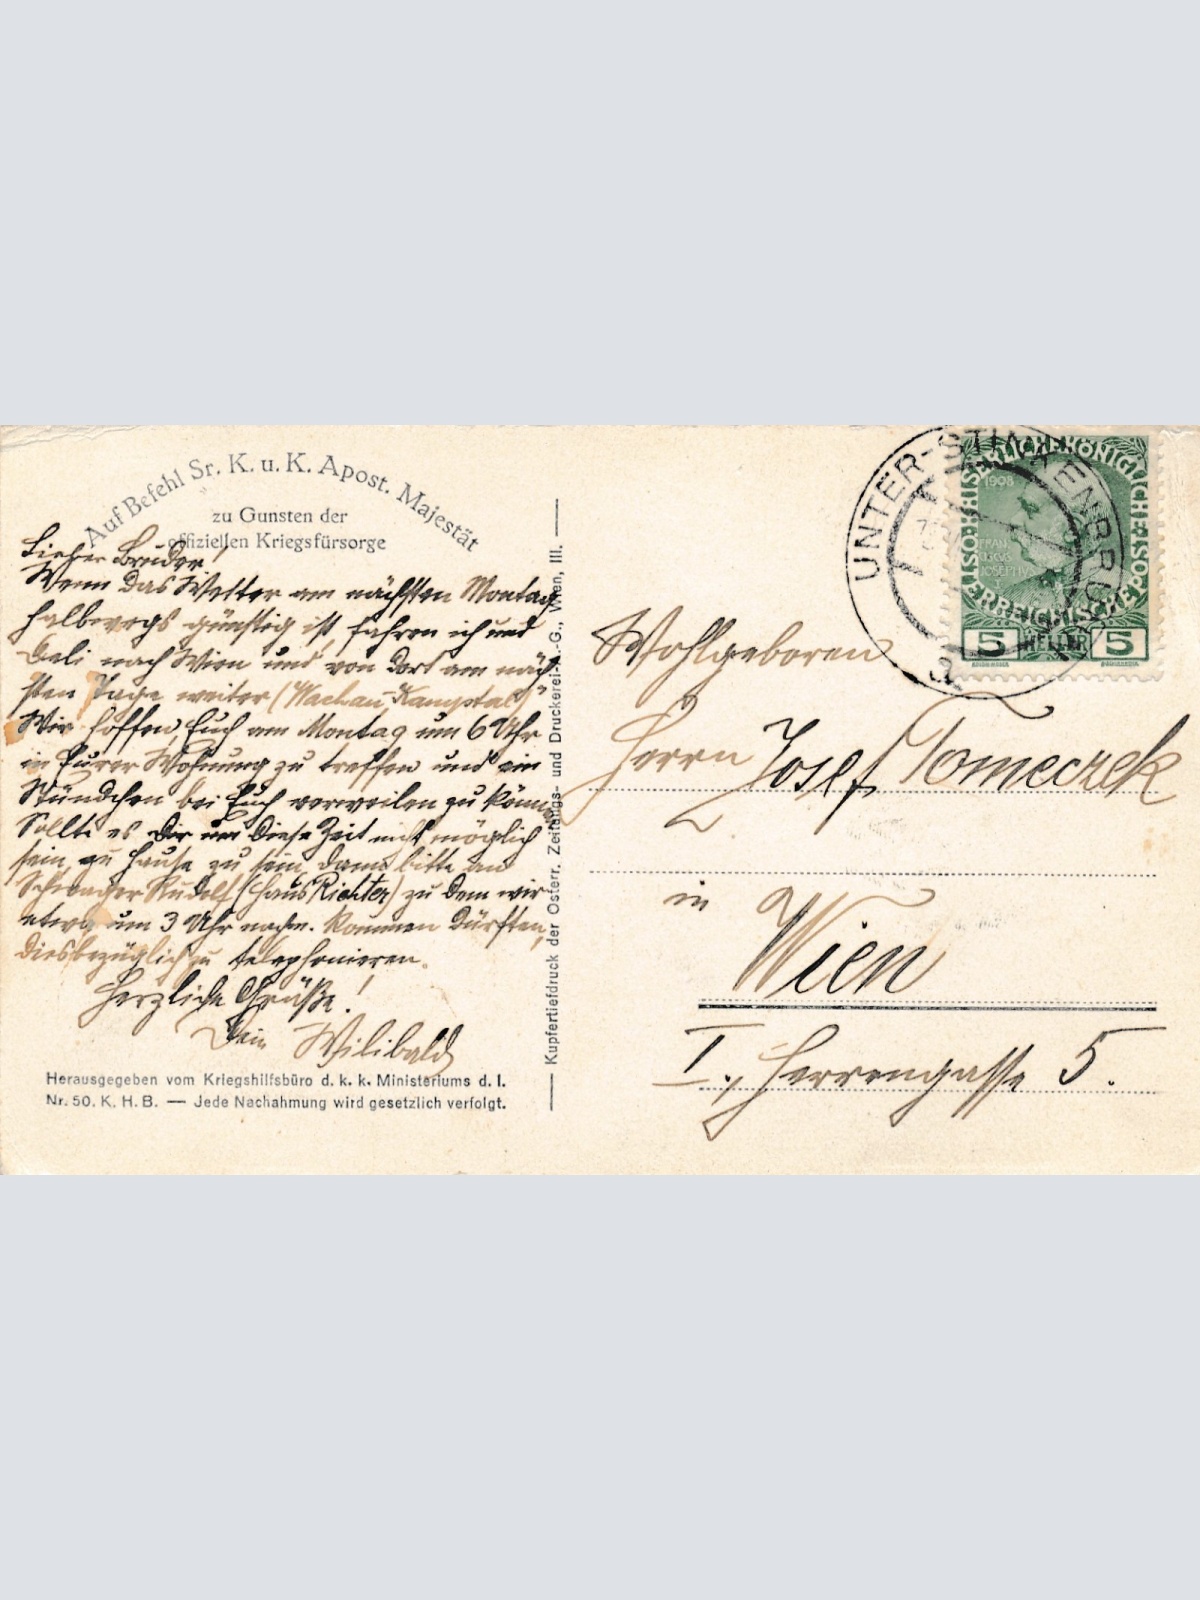 Auf Befehl Sr. K. u. K. Apost. Majestät
zu Gunsten der
offiziellen Kriegsfürsorge
Lieber Bruder!
Wenn das Wetter am nächsten Montag
halbwegs günstig ist, fahren ich und
Deli nach Wien und von dort am näch-
sten Tage weiter (Wachau-Kamptal)
Wir hoffen, Euch am Montag um 6 Uhr
in Eurer Wohnung zu treffen und ein
Stündchen bei Euch verweilen zu können.
Sollte es Dir um diese Zeit nicht möglich
sein, zu Hause zu sein, dann bitte an
Schwager Rudolf (Haus Richter) zu dem wir
etwa um 3 Uhr nachm. kommen dürften,
diesbezüglich zu telephonieren.
Herzliche Grüße!
Dein Wilibald
Herausgegeben vom Kriegshilfsbüro d. k. k. Ministeriums d. I.
Nr. 50. K. H. B. — Jede Nachahmung wird gesetzlich verfolgt.
Kupfertiefdruck der Österr. Zeitungs- und Druckerei-A.-G., Wien, III.
UNTER-STINKENBRUNN
KAISERLICHE KÖNIGLICHE ÖSTERREICHISCHE POST
1908
FRANCISCUS
JOSEPHUS
I.
5 HELLER 5
Wohlgeboren
Herrn Josef Tomeczek
in
Wien
I., Herrengasse 5.